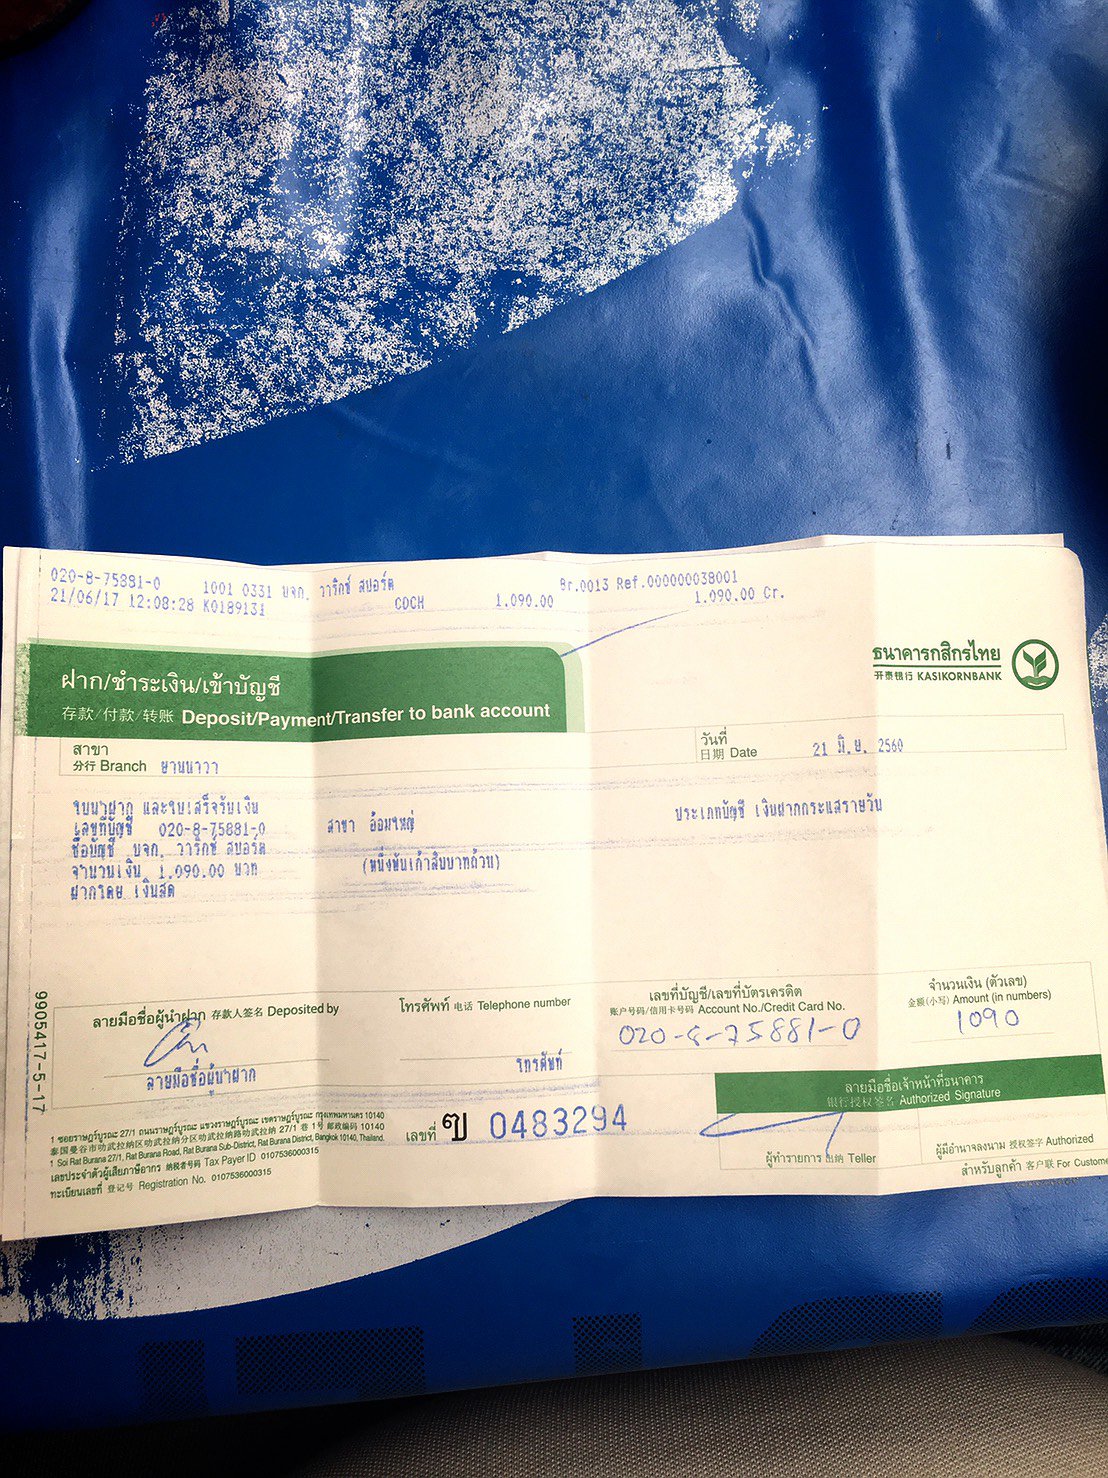 020-8-75881-0 1001 0331 บจก. วาริกซ์ สปอร์ต Br.0013 Ref.00000003B001
21/06/17 12:08:28 K0189131 CDCH 1,090.00 1,090.00 Cr.
ฝาก/ชำระเงิน/เข้าบัญชี
存款/付款/转账 Deposit/Payment/Transfer to bank account
ธนาคารกสิกรไทย
开泰银行 KASIKORNBANK
สาขา
分行 Branch ยานนาวา
วันที่
日期 Date 21 มิ.ย. 2560
ใบนำฝาก และใบเสร็จรับเงิน
เลขที่บัญชี 020-8-75881-0 สาขา อ้อมใหญ่ ประเภทบัญชี เงินฝากกระแสรายวัน
ชื่อบัญชี บจก. วาริกซ์ สปอร์ต
จำนวนเงิน 1,090.00 บาท (หนึ่งพันเก้าสิบบาทถ้วน)
ฝากโดย เงินสด
9905417-5-17
ลายมือชื่อผู้นำฝาก 存款人签名 Deposited by
โทรศัพท์ 电话 Telephone number
เลขที่บัญชี/เลขที่บัตรเครดิต
账户号码/信用卡号码 Account No./Credit Card No.
020-8-75881-0
จำนวนเงิน (ตัวเลข)
金额(小写) Amount (in numbers)
1090
ลายมือชื่อผู้นำฝาก
โทรศัพท์
ลายมือชื่อเจ้าหน้าที่ธนาคาร
银行授权签名 Authorized Signature
เลขที่ ฃ 0483294
ผู้ทำรายการ 出纳 Teller
ผู้มีอำนาจลงนาม 授权签字 Authorized
สำหรับลูกค้า 客户联 For Custome
1 ซอยราษฎร์บูรณะ 27/1 ถนนราษฎร์บูรณะ แขวงราษฎร์บูรณะ เขตราษฎร์บูรณะ กรุงเทพมหานคร 10140
泰国曼谷市叻武拉纳区叻武拉纳分区叻武拉纳路叻武拉纳 27/1 巷 1号 邮政编码 10140
1 Soi Rat Burana 27/1, Rat Burana Road, Rat Burana Sub-District, Rat Burana District, Bangkok 10140, Thailand.
เลขประจำตัวผู้เสียภาษีอากร 纳税者号码 Tax Payer ID 0107536000315
ทะเบียนเลขที่ 登记号 Registration No. 0107536000315